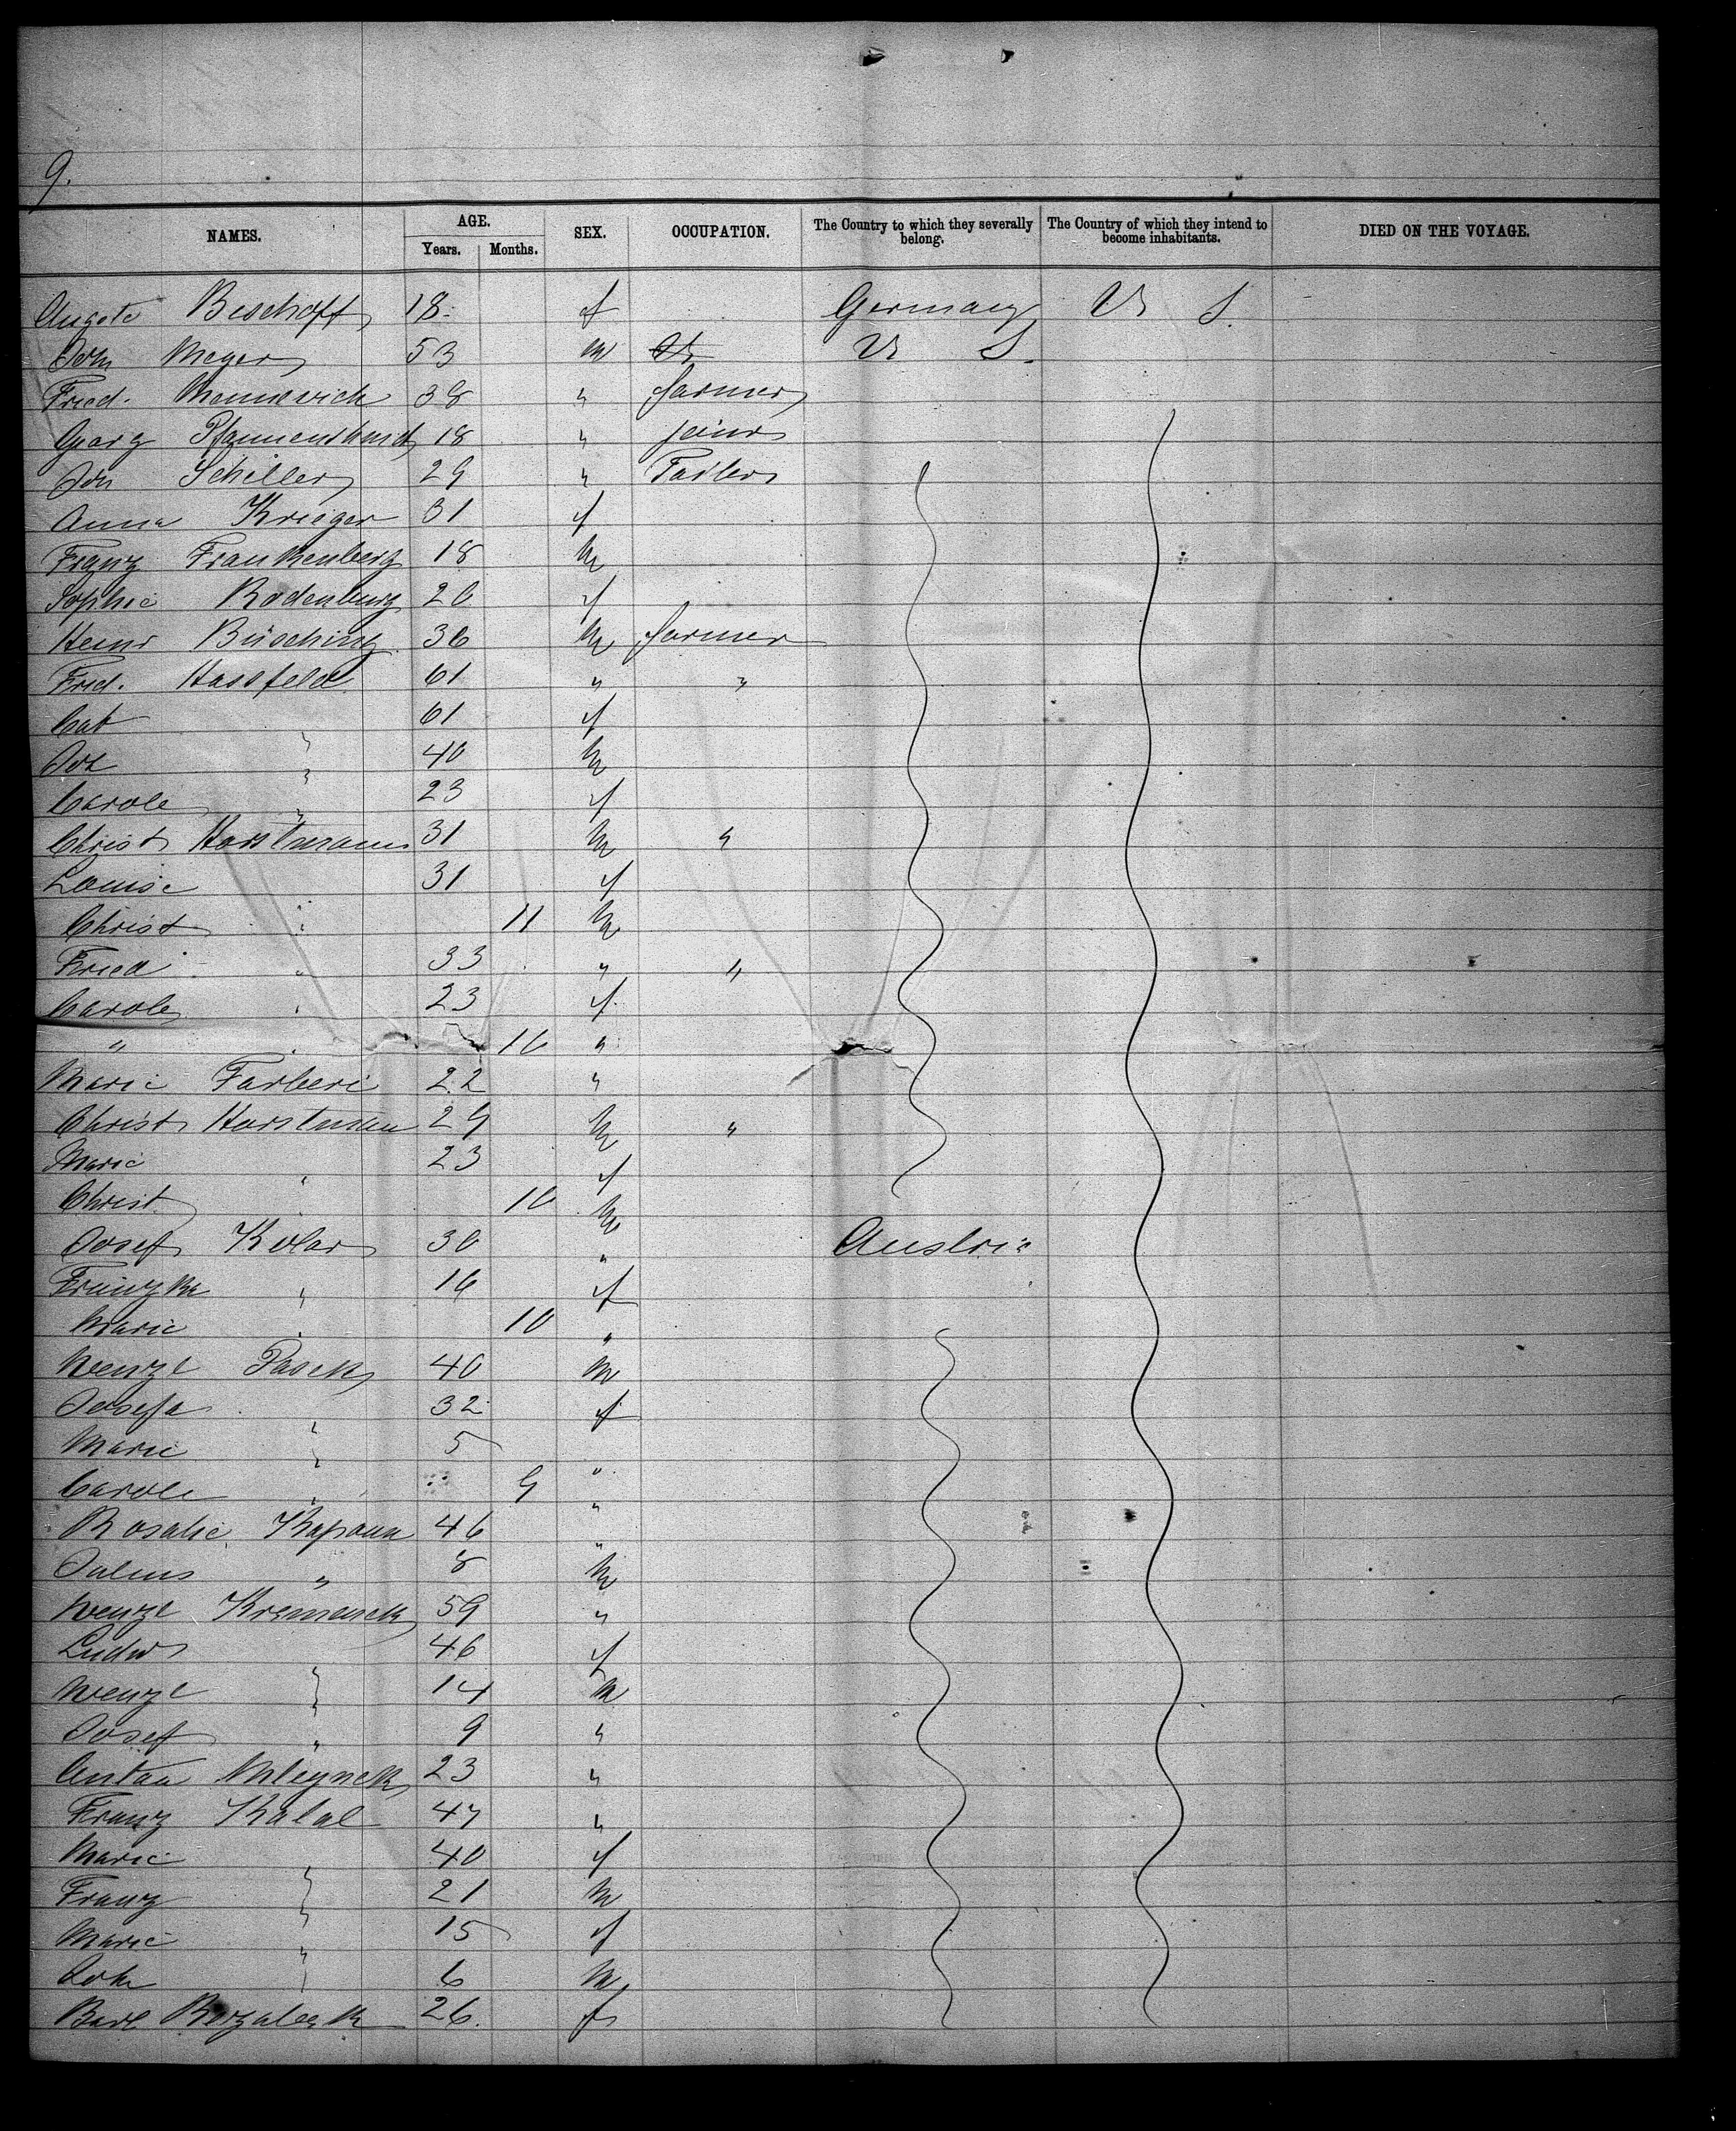 9.
NAMES. AGE. Years. Months. SEX. OCCUPATION. The Country to which they severally belong. The Country of which they intend to become inhabitants. DIED ON THE VOYAGE.
Bischoff 18. f Germany U S.
Joh Meyer 53 m U S.
Fried. Mennerich 38 " farmer
Georg Pfannenschmid 18 " joiner
Joh Schiller 29 " Tailor
Anna Krieger 31 f
Franz Frankenberg 18 m
Sophie Rodenburg 20 f
Heinr Büsching 36 m farmer
Fried. Hassfeld 61 " "
Cat " 61 f
Joh " 40 m
Carole " 23 f
Christ Horstmann 31 m "
Louise 31 f
Christ " 11 m
Fried " 33 " "
Carole " 23 f
" " 10 "
Marie Farberi 22 "
Christ Horstman 29 m "
Marie " 23 f
Christ " 10 m
Josef Kolar 30 " Austria
Franzka " 16 f
Marie " 10 "
Wenzl Pasek 40 m
Josefa " 32 f
Marie " 5 "
Carole " 9 "
Rosalie Kapaun 46 "
Julius " 8 m
Wenzl 59 "
Ludw " 46 f
Wenzl " 14 m
Josef " 9 "
Anton Mleynek 23 "
Franz Kalal 47 "
Marie " 40 f
Franz " 21 m
Marie " 15 f
Joh " 6 m
26. f